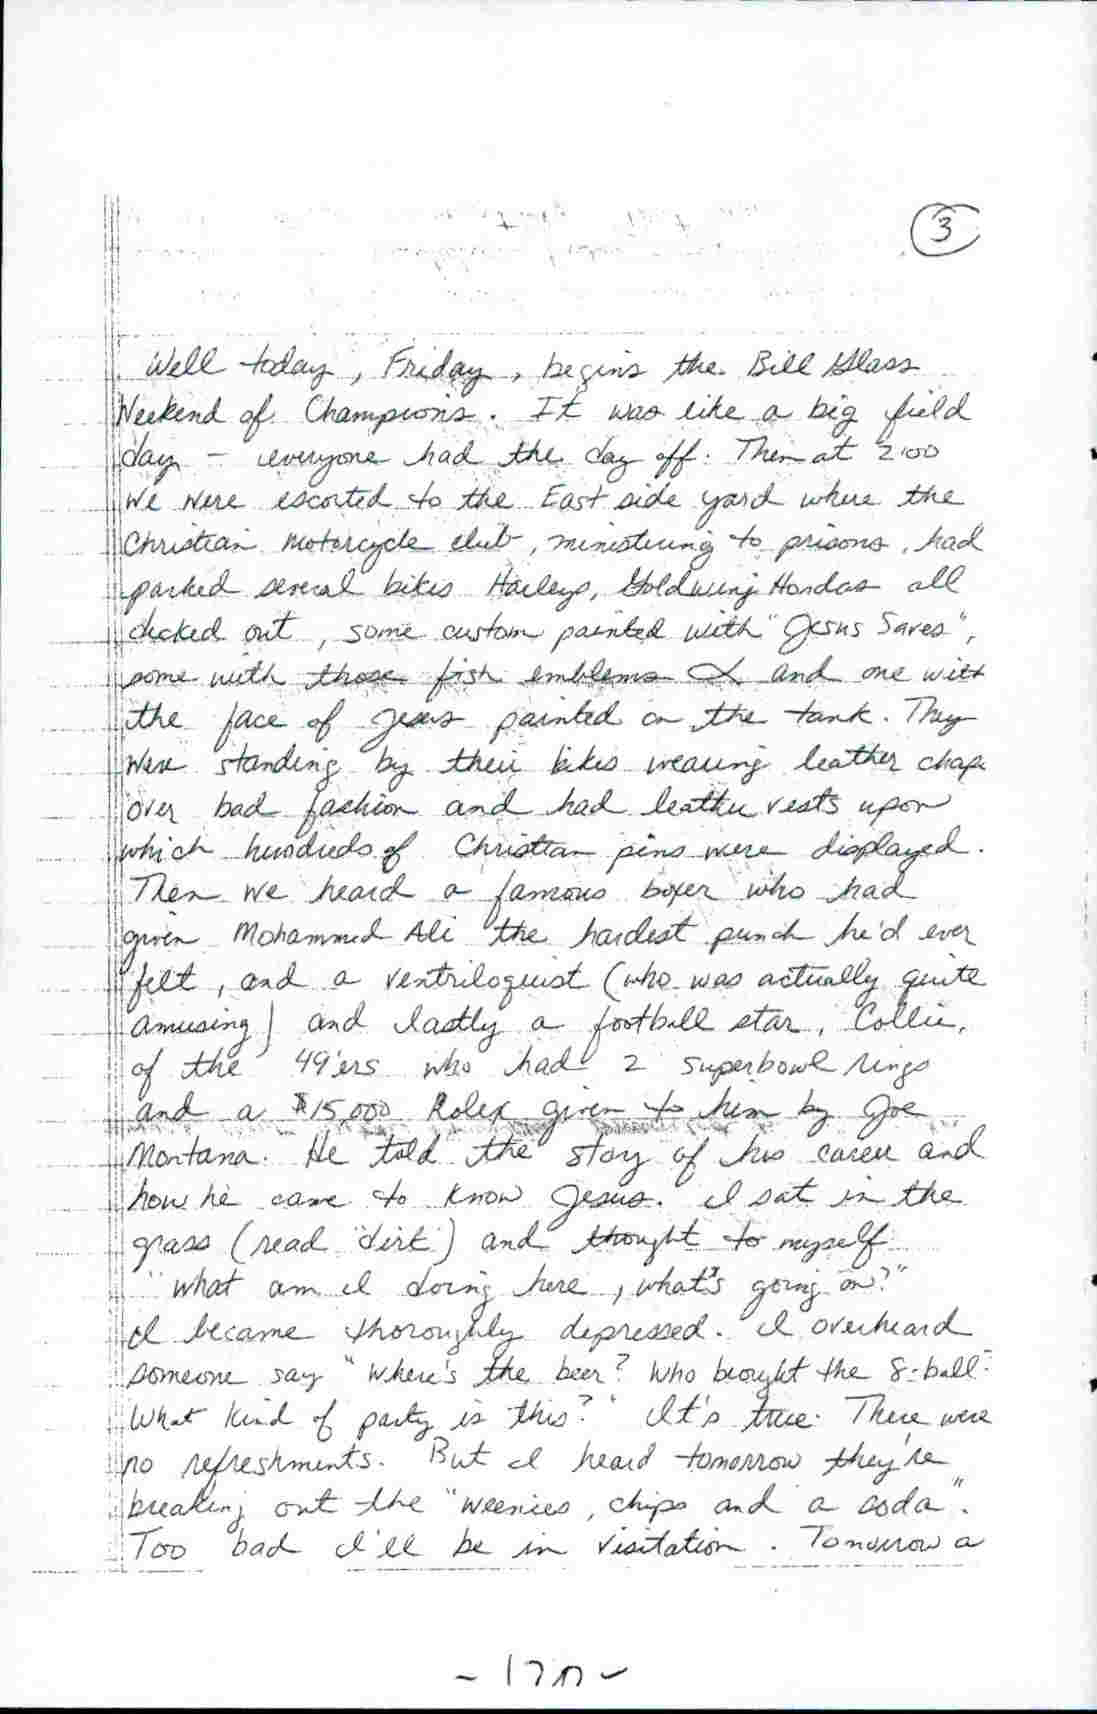 3
Well today, Friday, begins the Bill Glass
Weekend of Champions. It was like a big field
day - everyone had the day off. Then at 2:00
we were escorted to the East side yard where the
Christian Motorcycle club, ministering to prisons, had
parked several bikes Harleys, Goldwing Hondas all
decked out, some custom painted with "Jesus Saves",
some with those fish emblems and one with
the face of Jesus painted on the tank. They
were standing by their bikes wearing leather chaps
over bad fashion and had leather vests upon
which hundreds of Christian pins were displayed.
Then we heard a famous boxer who had
given Mohammed Ali the hardest punch he'd ever
felt, and a ventriloquist (who was actually quite
amusing) and lastly a football star, Collie,
of the 49'ers who had 2 superbowl rings
and a $15,000 Rolex given to him by Joe
Montana. He told the story of his career and
how he came to know Jesus. I sat in the
grass (read "dirt") and thought to myself
"what am I doing here, what's going on?"
I became thoroughly depressed. I overheard
someone say "Where's the beer? Who brought the 8-ball?
What kind of party is this?" It's true. There were
no refreshments. But I heard tomorrow they're
breaking out the "weenies, chips and a coda".
Too bad I'll be in visitation. Tomorrow a